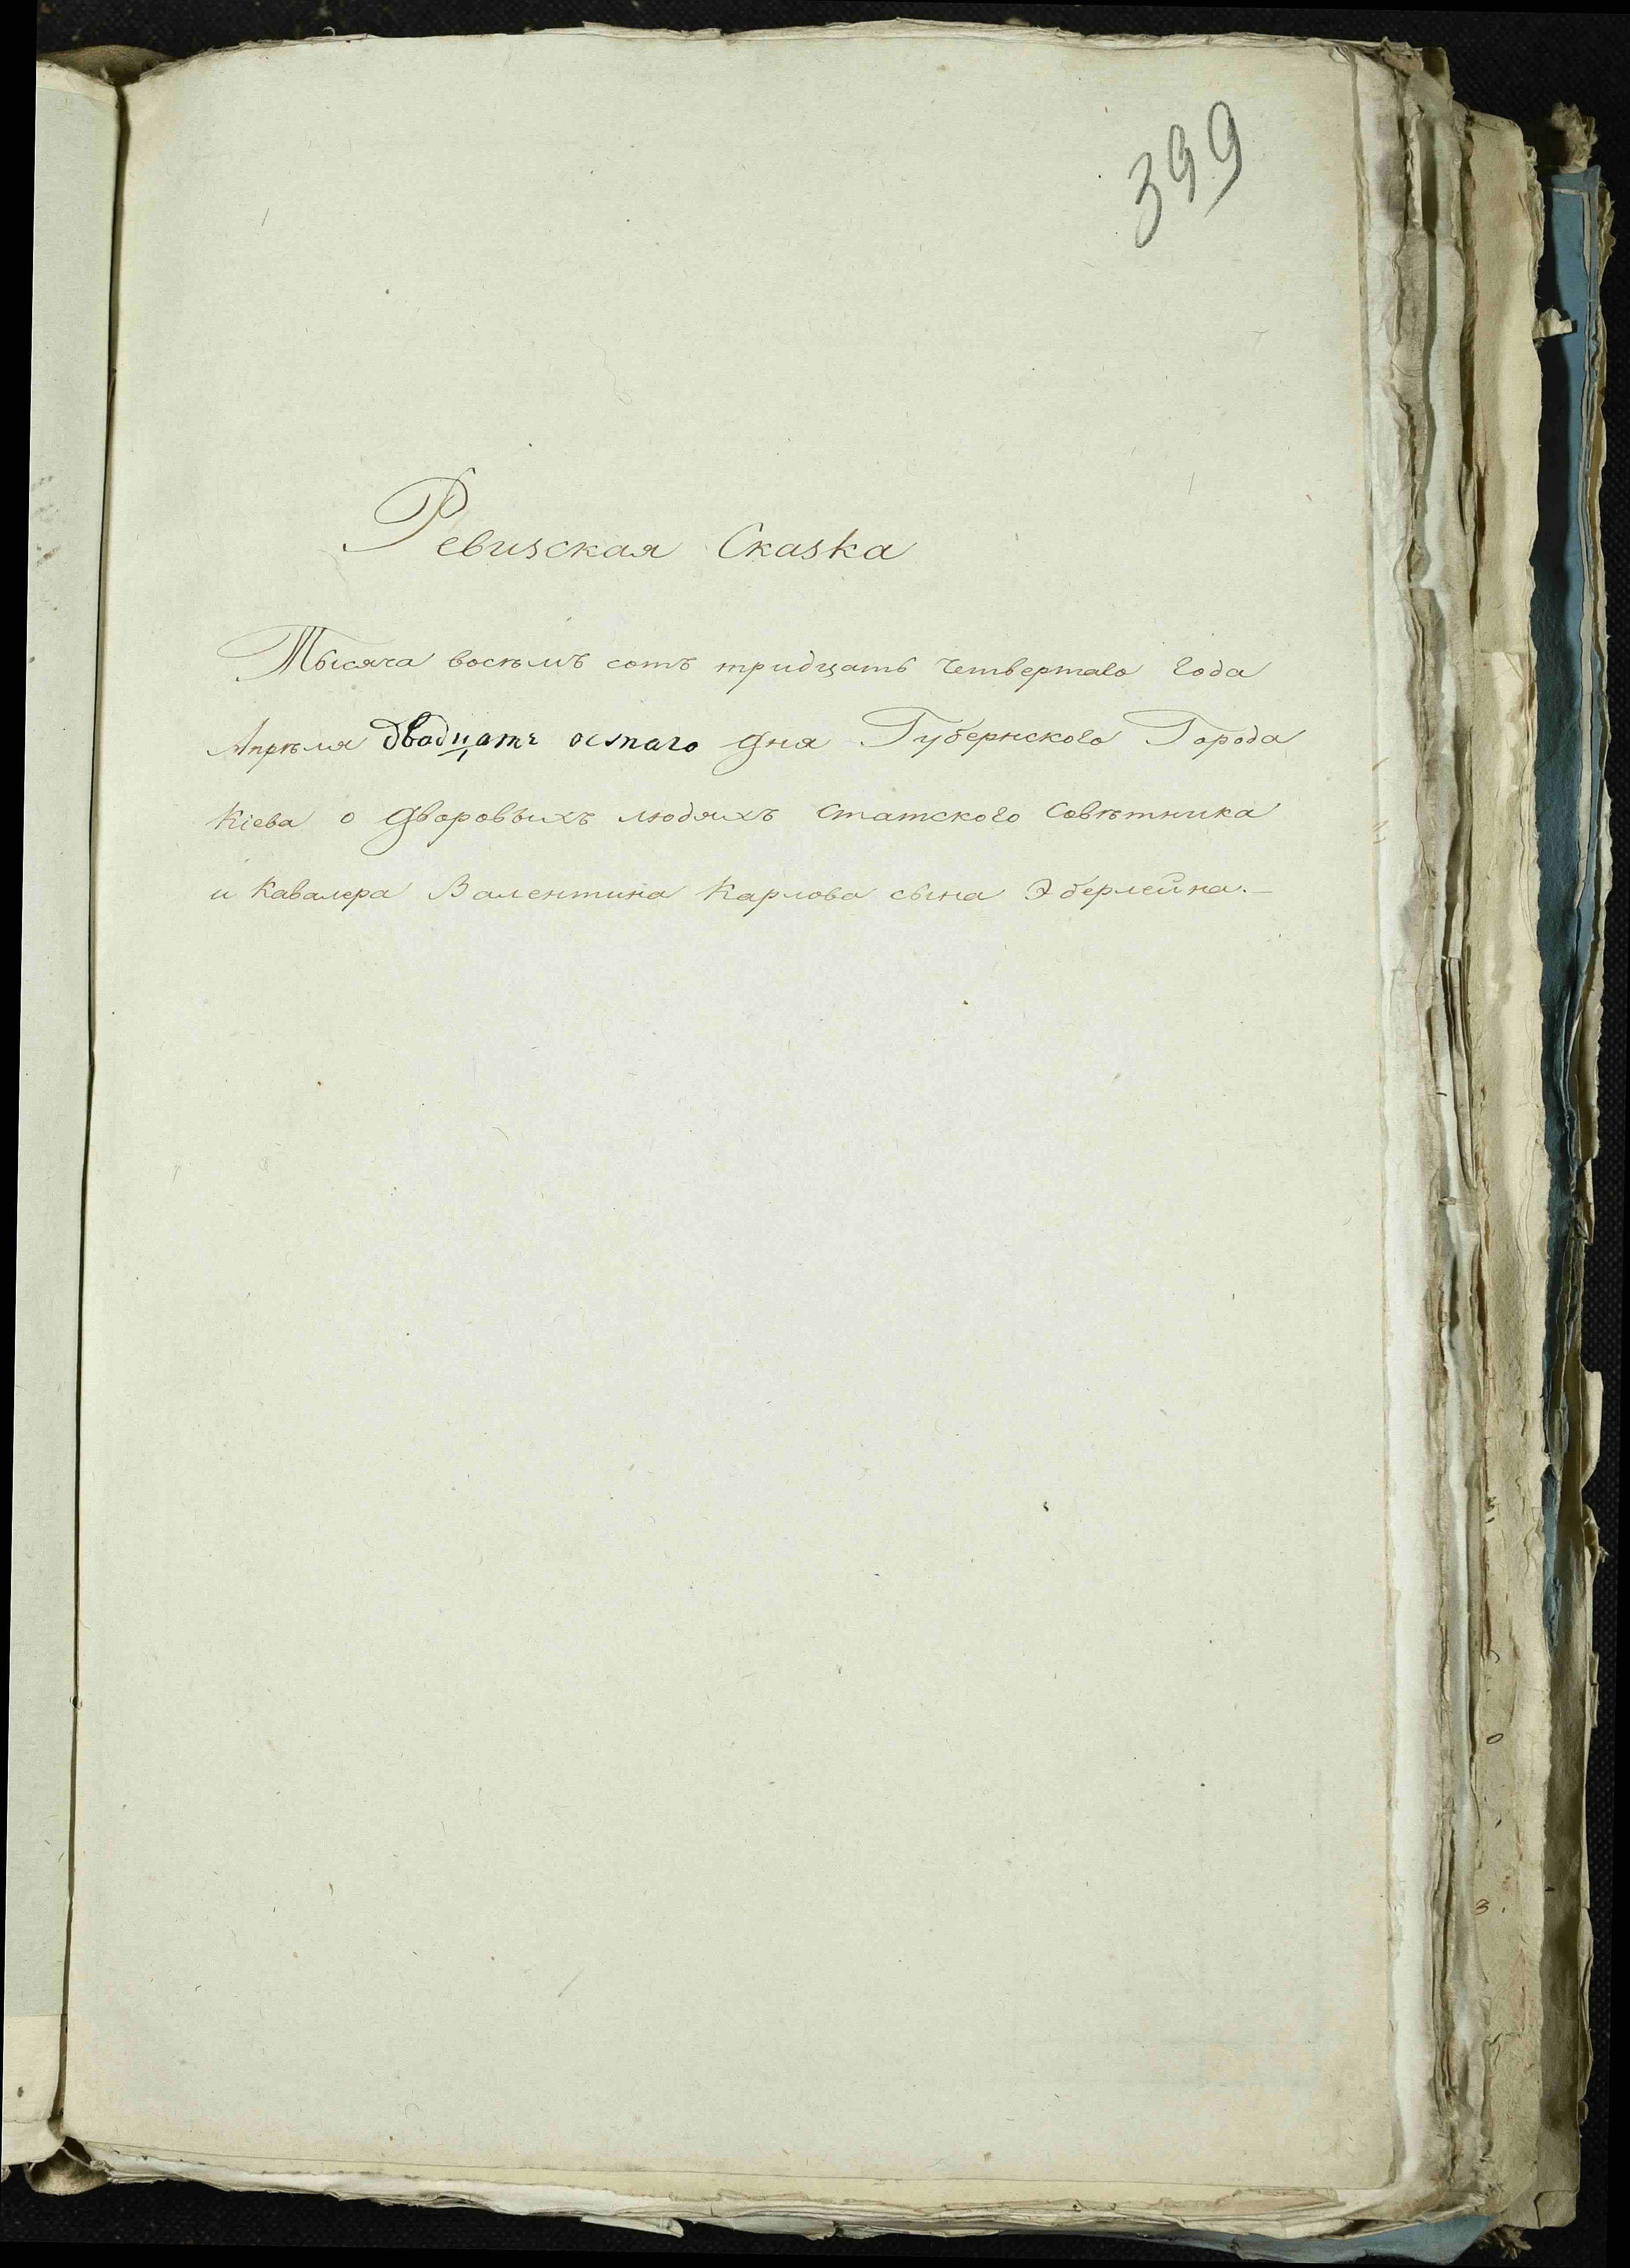 399
Ревизская Сказка
Тысяча восѣмъ сотъ тридцать четвертаго года
Апрѣля двадцать осмаго дня Губернского Города
Кіева о дворовыхъ людяхъ Статского Совѣтника
и Кавалера Валентина Карлова сына Эберлейна.—